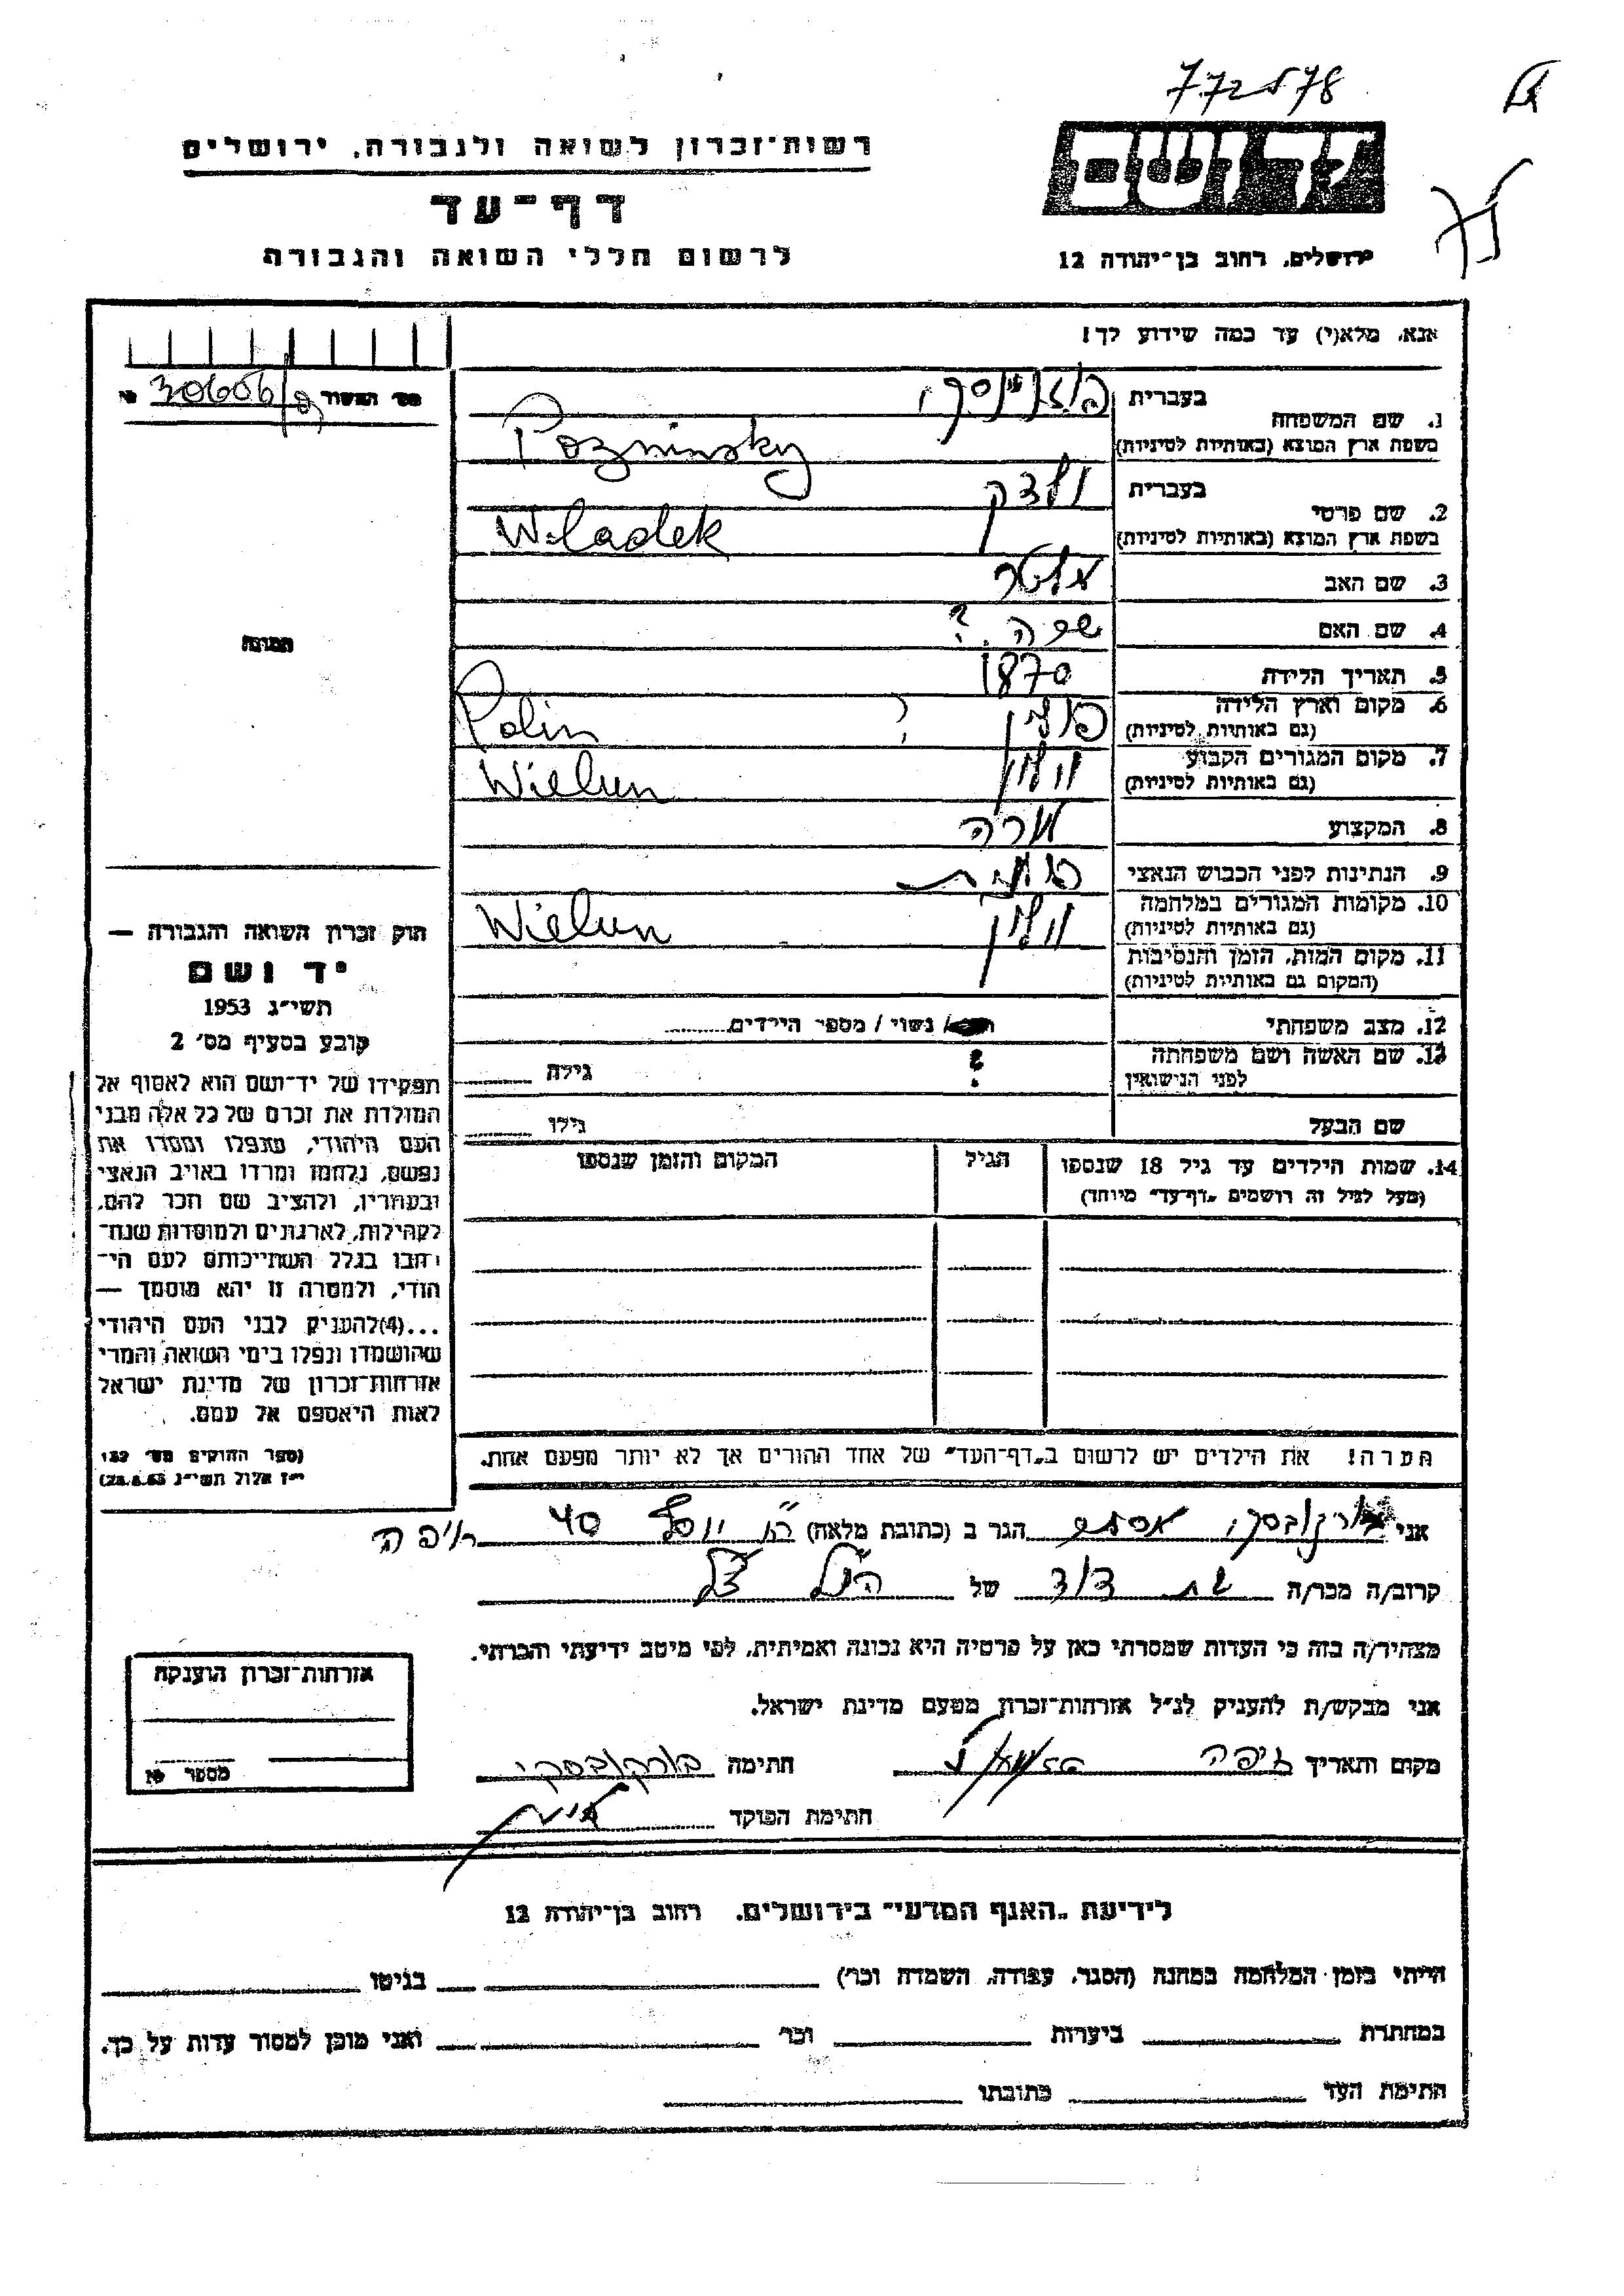 772578
רשות־זכרון לשואה ולגבורה, ירושלים
דף־עד
לרשום חללי השואה והגבורה
ירושלים, רחוב בן־יהודה 12
אנא, מלא(י) עד כמה שידוע לך!
בעברית
פוזנינסקי
1. שם המשפחה
בשפת ארץ המוצא (באותיות לטיניות)
Pozninsky
בעברית
ולדק
2. שם פרטי
בשפת ארץ המוצא (באותיות לטיניות)
Wladek
3. שם האב
4. שם האם
שפה ?
5. תאריך הלידה
1870
6. מקום וארץ הלידה
(גם באותיות לטיניות)
פולין ? Polin
7. מקום המגורים הקבוע
(גם באותיות לטיניות)
וילון Wielun
8. המקצוע
מורה
9. הנתינות לפני הכבוש הנאצי
פולנית
10. מקומות המגורים במלחמה
(גם באותיות לטיניות)
וילון Wielun
11. מקום המות, הזמן והנסיבות
(המקום גם באותיות לטיניות)
12. מצב משפחתי
/ נשוי / מספר הילדים
13. שם האשה ושם משפחתה
לפני הנישואין
? גילה
שם הבעל
גילו
14. שמות הילדים עד גיל 18 שנספו
(מעל לגיל זה רושמים „דף־עד״ מיוחד)
הגיל
המקום והזמן שנספו
הערה! את הילדים יש לרשום ב„דף־העד״ של אחד ההורים אך לא יותר מפעם אחת.
30606
תמונה
חוק זכרון השואה והגבורה —
יד ושם
תשי״ג 1953
קובע בסעיף מס׳ 2
תפקידו של יד־ושם הוא לאסוף אל
המולדת את זכרם של כל אלה מבני
העם היהודי, שנפלו ומסרו את
נפשם, נלחמו ומרדו באויב הנאצי
ובעוזריו, ולהציב שם וזכר להם,
לקהילות, לארגונים ולמוסדות שנח־
רבו בגלל השתייכותם לעם הי־
הודי, ולמטרה זו יהא מוסמך —
...(4)להעניק לבני העם היהודי
שהושמדו ונפלו בימי השואה והמרי
אזרחות־זכרון של מדינת ישראל
לאות היאספם אל עמם.
(ספר החוקים מס׳ 132
י״ז אלול תשי״ג 28.8.53)
אני בורקובסקי אסתר הגר ב (כתובת מלאה) יוסף 40 חיפה
קרוב/ה מכר/ה בת דוד של הנ״ל
מצהיר/ה בזה כי העדות שמסרתי כאן על פרטיה היא נכונה ואמיתית, לפי מיטב ידיעתי והכרתי.
אני מבקש/ת להעניק לנ״ל אזרחות־זכרון מטעם מדינת ישראל.
מקום ותאריך חיפה
חתימה בורקובסקי
חתימת הפוקד
אזרחות־זכרון הוענקה
מספר №
לידיעת „האגף המדעי״ בירושלים, רחוב בן־יהודה 12
הייתי בזמן המלחמה במחנה (הסגר, עבודה, השמדה וכו׳) בגיטו
במחתרת ביערות וכו׳ ואני מוכן למסור עדות על כך.
חתימת העד כתובתו